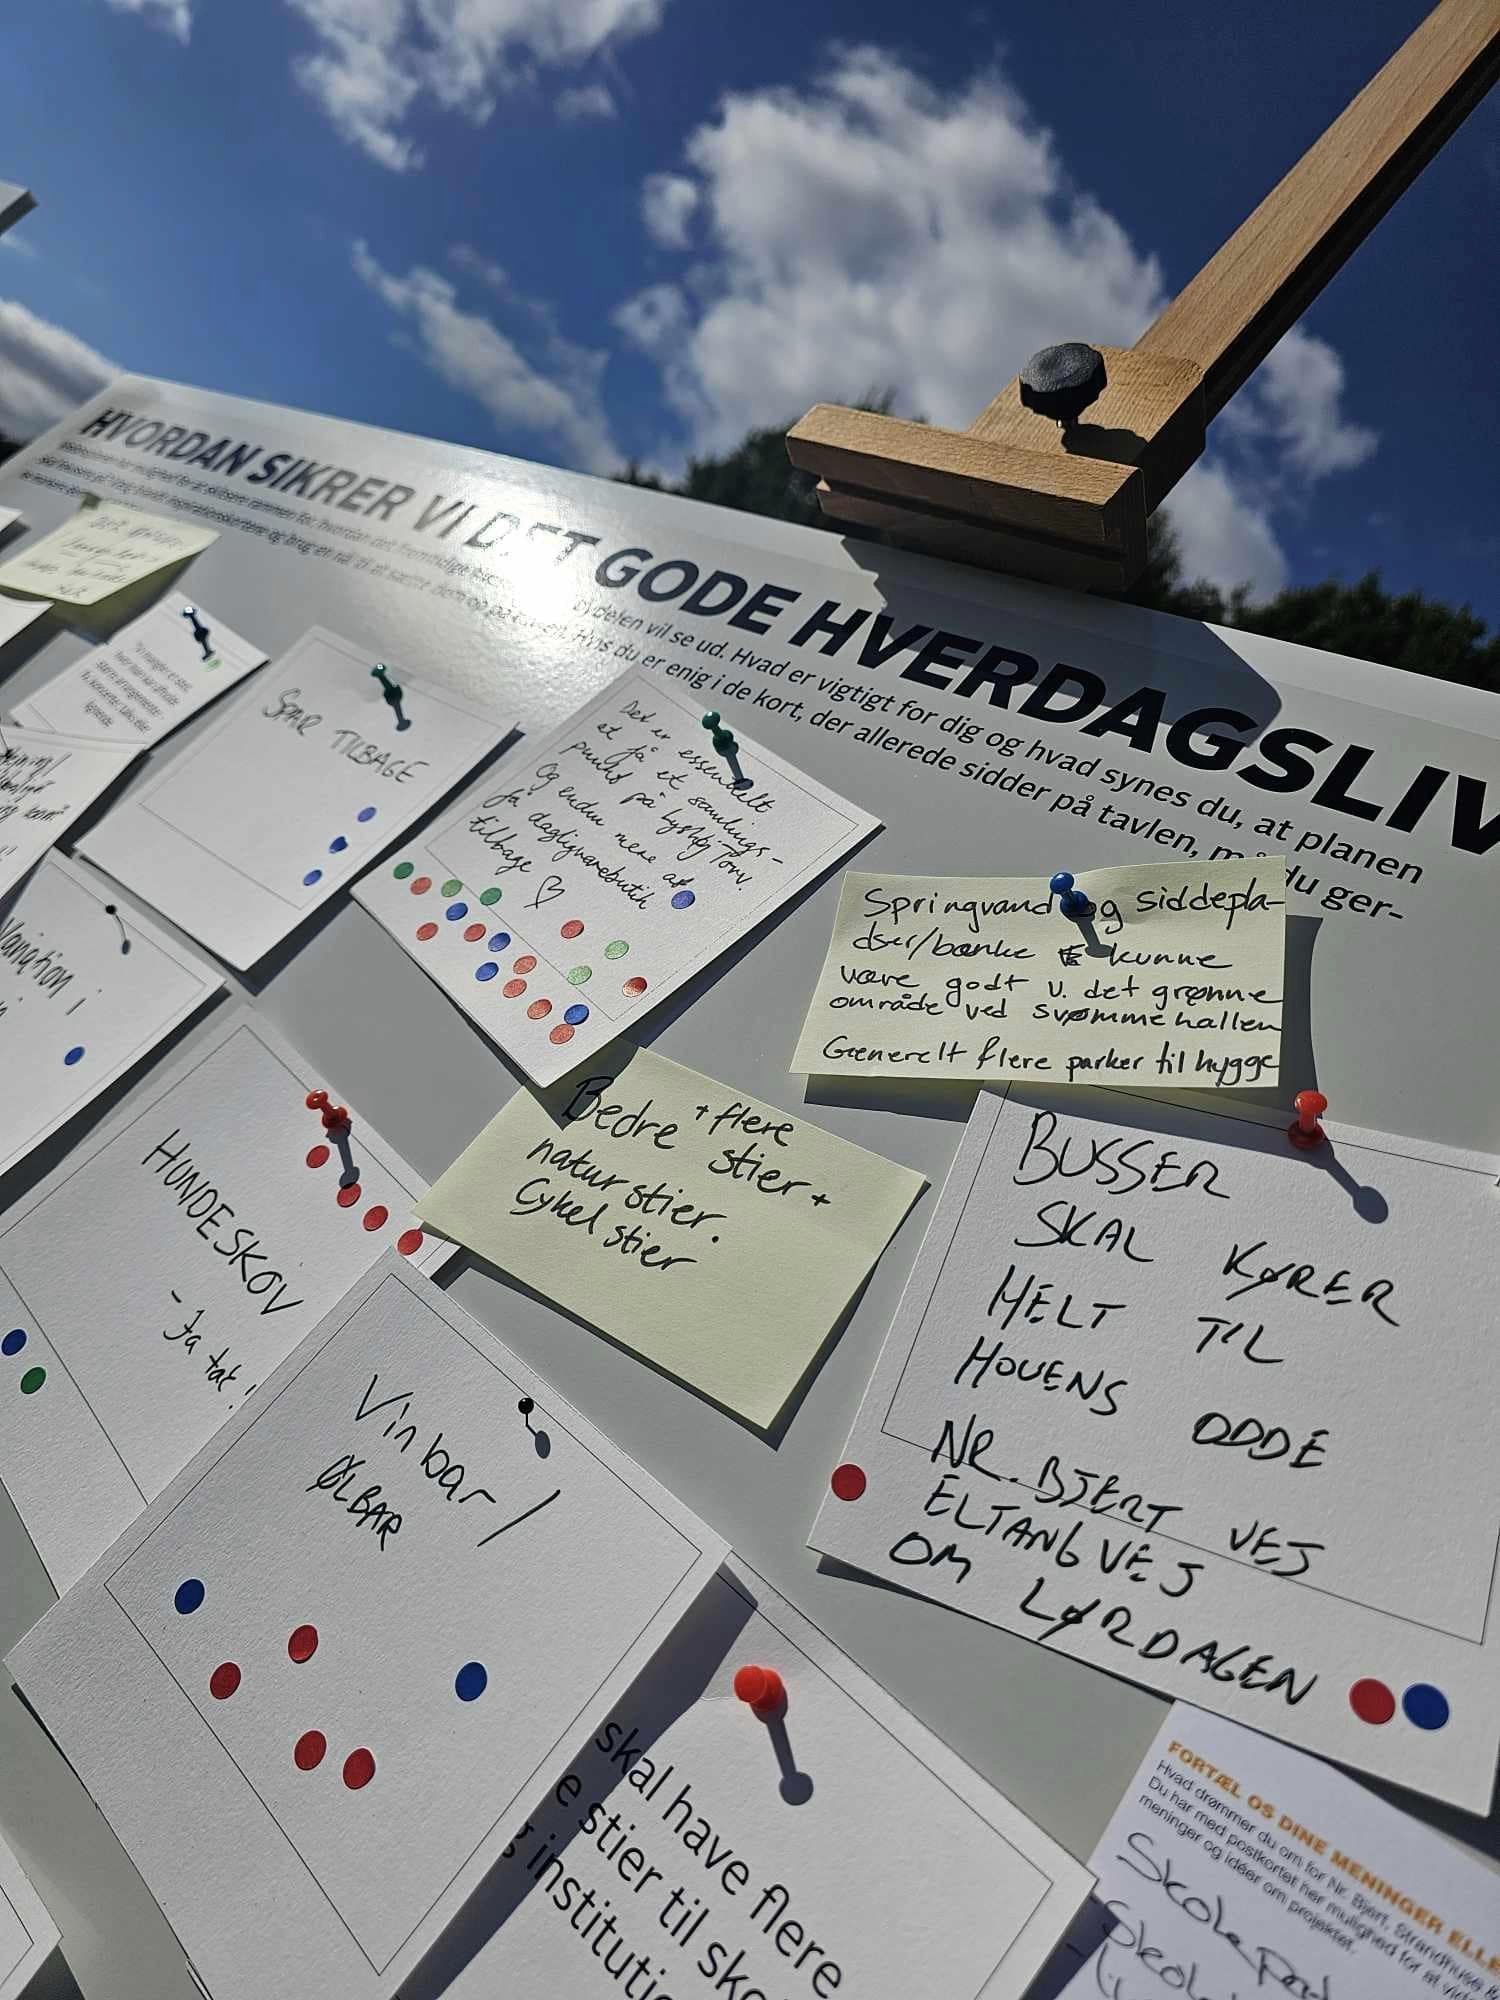 HVORDAN SIKRER VI DET GODE HVERDAGSLIV
delen vil se ud. Hvad er vigtigt for dig og hvad synes du, at planen
Hvis du er enig i de kort, der allerede sidder på tavlen, må du ger-
SPAR TILBAGE
Det er essentielt
at få et samlings-
punkt på Lyshøj Torv.
Og endnu mere at
få dagligvarebutik
tilbage ♡
Springvand og siddepla-
dser/bænke kunne
være godt v. det grønne
område ved svømmehallen
Generelt flere parker til hygge
Variation i
Bedre + flere
stier +
naturstier.
Cykelstier
HUNDESKOV
- Ja tak!
BUSSER
SKAL KØRER
HELT TIL
HOUENS ODDE
NR. BJERT VEJ
ELTANG VEJ
OM LØRDAGEN
Vinbar /
ØLBAR
skal have flere
e stier til sko
g institutio
FORTÆL OS DINE MENINGER ELLE
Hvad drømmer du om for Nr. Bjert, Strandhuse &
Du har med postkortet her mulighed for at vide
meninger og idéer om projektet.